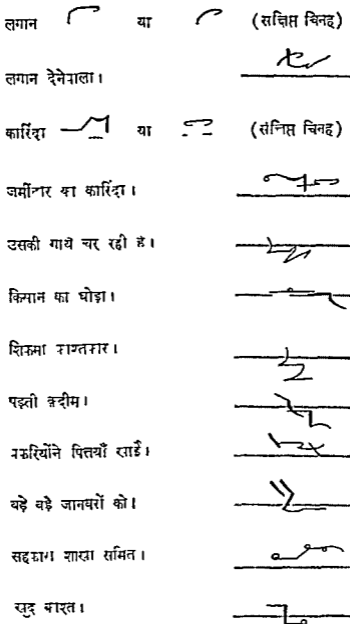 लगान या (संक्षिप्त चिनह)
लगान देनेवाला।
कारिंदा या (संक्षिप्त चिनह)
जमींदार का कारिंदा।
उसकी गाये चर रही हैं।
किसान का घोड़ा।
शिकमी काश्तकार।
पड़ती क़दीम।
बकरियोंने पित्तयाँ खाईं।
बड़े बड़े जानवरों को।
सहकारी शाखा समित।
खुद काश्त।